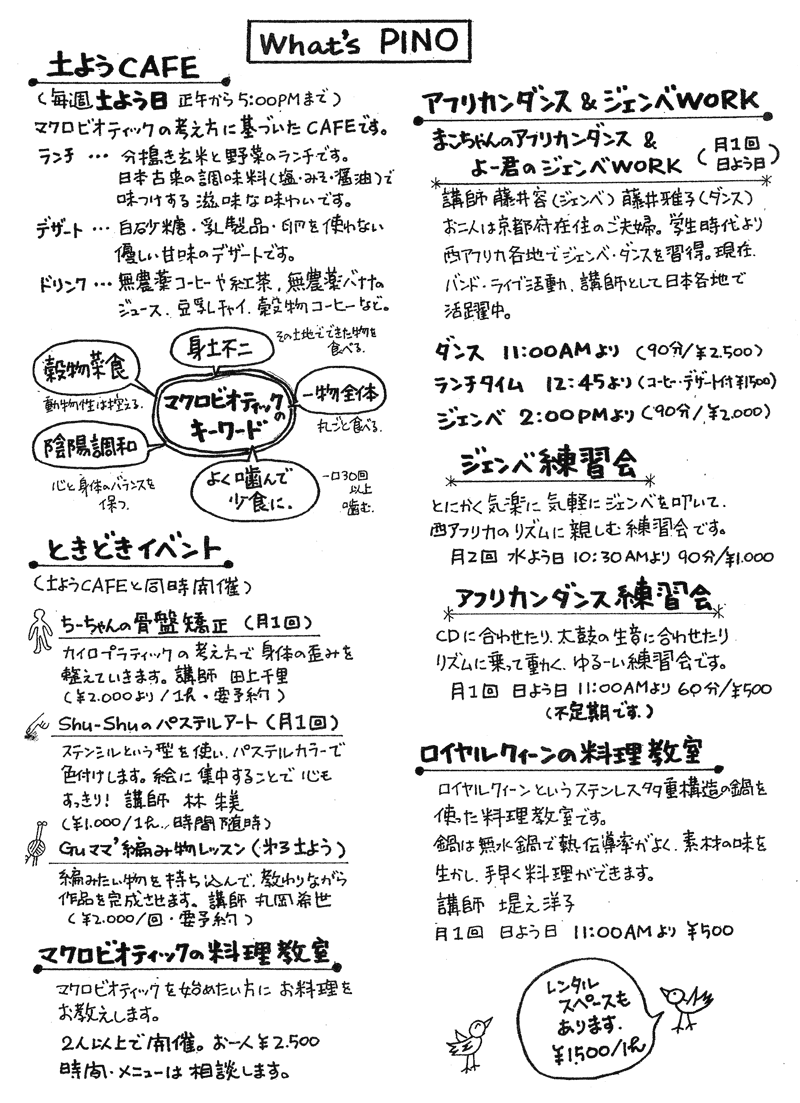 What's PINO
土ようCAFE
(毎週土よう日 正午から5:00PMまで)
マクロビオティックの考え方に基づいたCAFEです。
ランチ … 分搗き玄米と野菜のランチです。
日本古来の調味料(塩・みそ・醤油)で
味つけする滋味な味わいです。
デザート … 白砂糖・乳製品・卵を使わない
優しい甘味のデザートです。
ドリンク … 無農薬コーヒーや紅茶、無農薬バナナの
ジュース、豆乳チャイ、穀物コーヒーなど。
穀物菜食
動物性は控える。
身土不二
その土地でできた物を
食べる。
マクロビオティックの
キーワード
一物全体
丸ごと食べる。
陰陽調和
心と身体のバランスを
保つ。
よく噛んで
少食に。
一口30回
以上
噛む。
ときどきイベント
(土ようCAFEと同時開催)
ちーちゃんの骨盤矯正(月1回)
カイロプラティックの考え方で身体の歪みを
整えていきます。講師 田上千里
(¥2.000より/1h・要予約)
Shu-Shuのパステルアート(月1回)
ステンシルという型を使い、パステルカラーで
色付けします。絵に集中することで心も
すっきり! 講師 林 朱美
(¥1.000/1h、時間随時)
Guママ'編み物レッスン(第3土よう)
編みたい物を持ち込んで、教わりながら
作品を完成させます。講師 丸岡希世
(¥2.000/回・要予約)
マクロビオティックの料理教室
マクロビオティックを始めたい方にお料理を
お教えします。
2人以上で開催。お一人¥2.500
時間・メニューは相談します。
アフリカンダンス&ジェンベWORK
まこちゃんのアフリカンダンス&
よー君のジェンベWORK (月1回
日よう日)
講師 藤井容(ジェンベ) 藤井雅子(ダンス)
お二人は京都府在住のご夫婦。学生時代より
西アフリカ各地でジェンベ・ダンスを習得。現在、
バンド・ライブ活動、講師として日本各地で
活躍中。
ダンス 11:00AMより (90分/¥2.500)
ランチタイム 12:45より(コーヒー・デザート付¥1500)
ジェンベ 2:00PMより(90分/¥2.000)
ジェンベ練習会
とにかく気楽に気軽にジェンベを叩いて、
西アフリカのリズムに親しむ練習会です。
月2回 水よう日 10:30AMより 90分/¥1.000
アフリカンダンス練習会
CDに合わせたり、太鼓の生音に合わせたり
リズムに乗って動く、ゆるーい練習会です。
月1回 日よう日 11:00AMより 60分/¥500
(不定期です。)
ロイヤルクィーンの料理教室
ロイヤルクィーンというステンレス多重構造の鍋を
使った料理教室です。
鍋は無水鍋で熱伝導率がよく、素材の味を
生かし、手早く料理ができます。
講師 堤え洋子
月1回 日よう日 11:00AMより ¥500
レンタル
スペースも
あります。
¥1500/1h